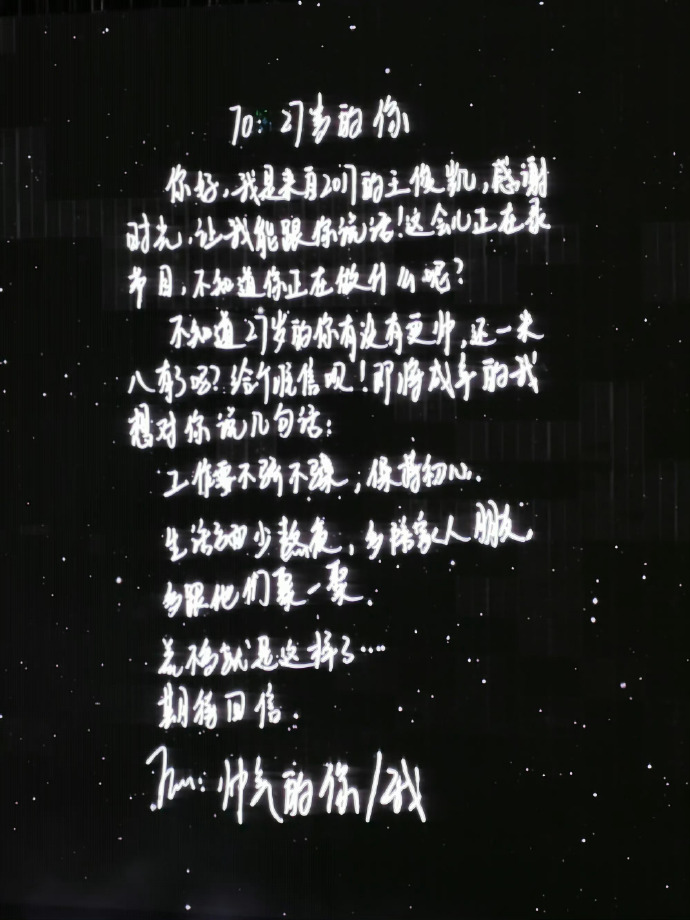 To: 27岁的你
你好,我是来自2017的王俊凯,感谢
时光,让我能跟你说话!这会儿正在录
节目,不知道你正在做什么呢?
不知道27岁的你有没有更帅,还一米
八有了吗?给个准信呗!即将成年的我
想对你说几句话:
工作要不骄不躁,保持初心.
生活要少熬夜,多陪家人朋友,
多跟他们聚一聚.
差不多就是这样了…
期待回信.
From: 帅气的你/我